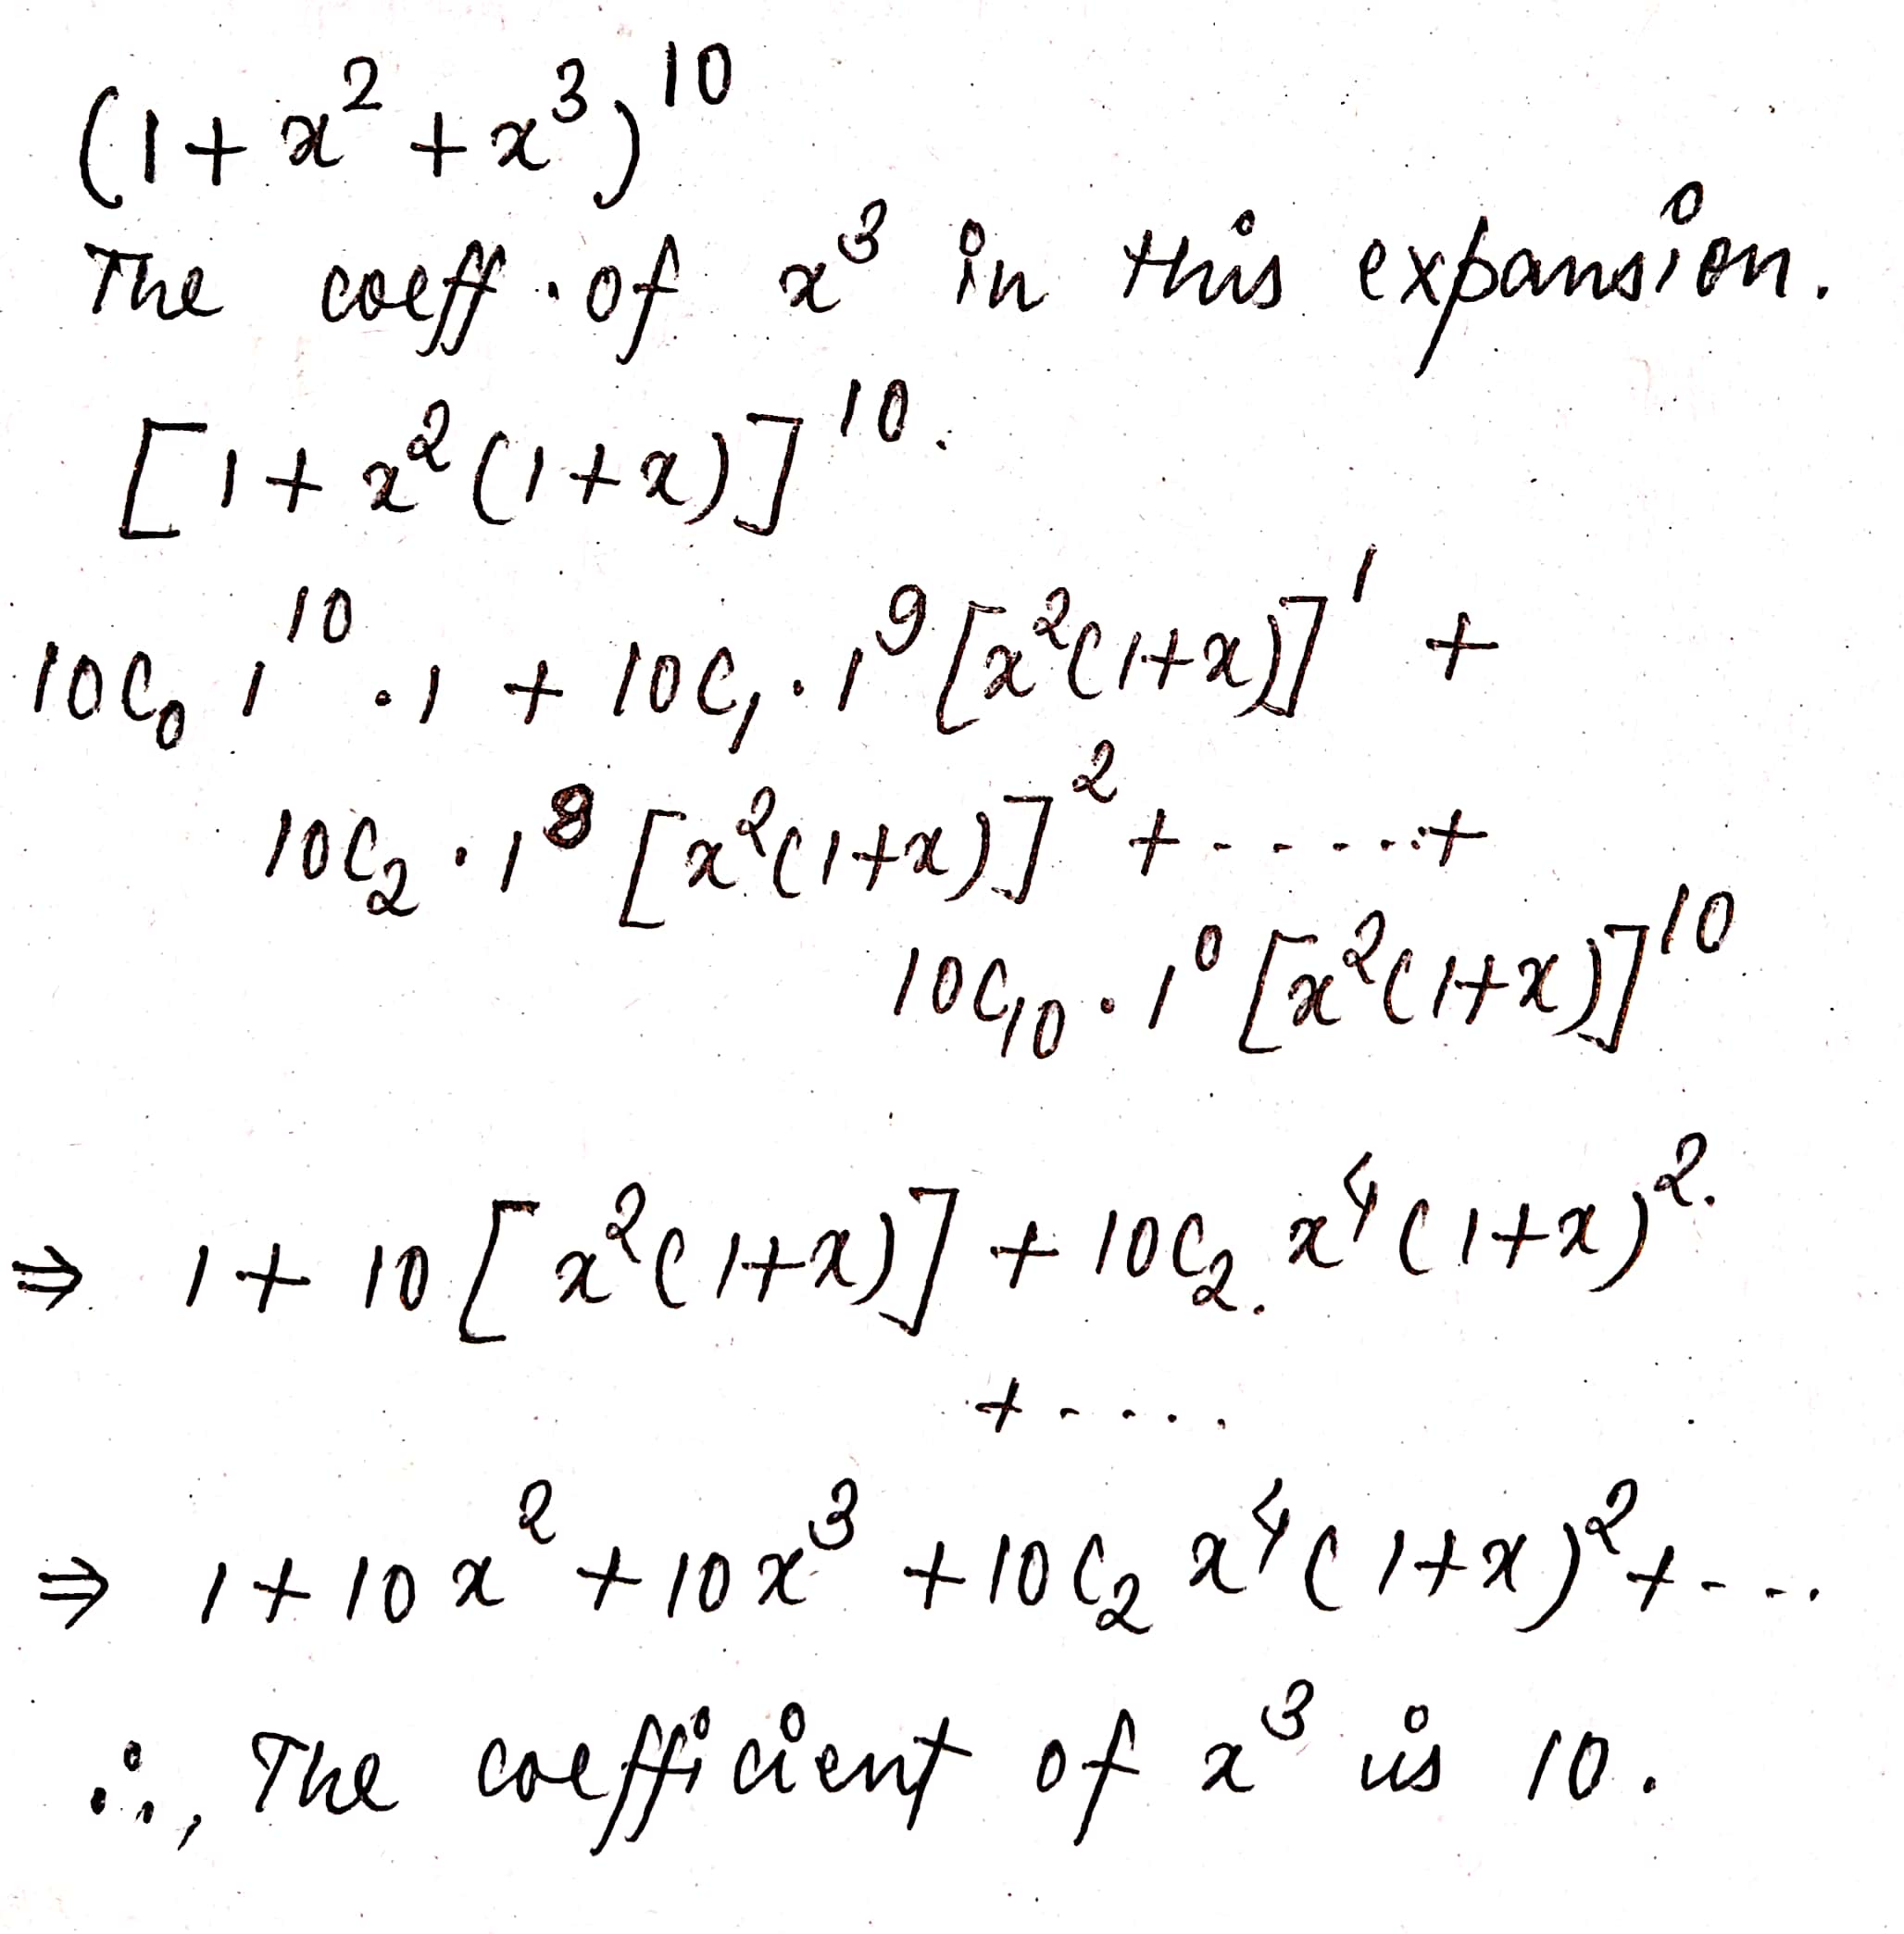 (1 + x² + x³)¹⁰
The coeff. of x³ in this expansion.
[1 + x²(1+x)]¹⁰.
10C₀ 1¹⁰ · 1 + 10C₁ · 1⁹ [x²(1+x)]¹ +
10C₂ · 1⁸ [x²(1+x)]² + - - - - - +
10C₁₀ · 1⁰ [x²(1+x)]¹⁰
⇒ 1 + 10 [x²(1+x)] + 10C₂. x⁴(1+x)².
+ - - - -
⇒ 1 + 10x² + 10x³ + 10C₂ x⁴(1+x)² + - - -
∴, The coefficient of x³ is 10.